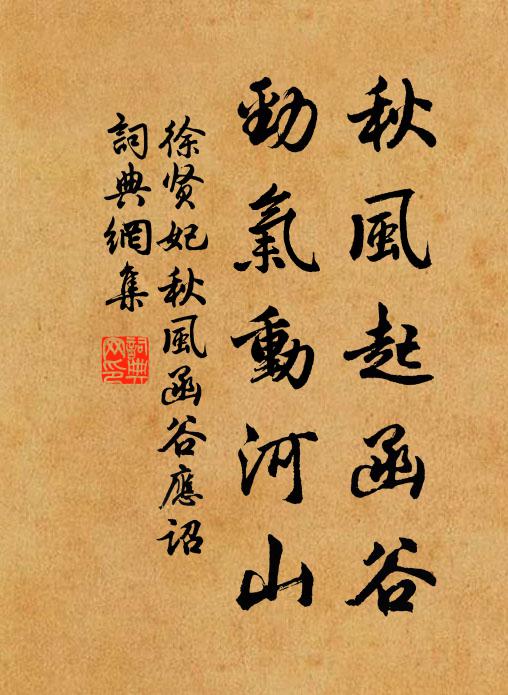 秋風起函谷
勁氣動河山
徐贤妃秋風函谷應詔
詞典網集
詞典
网印